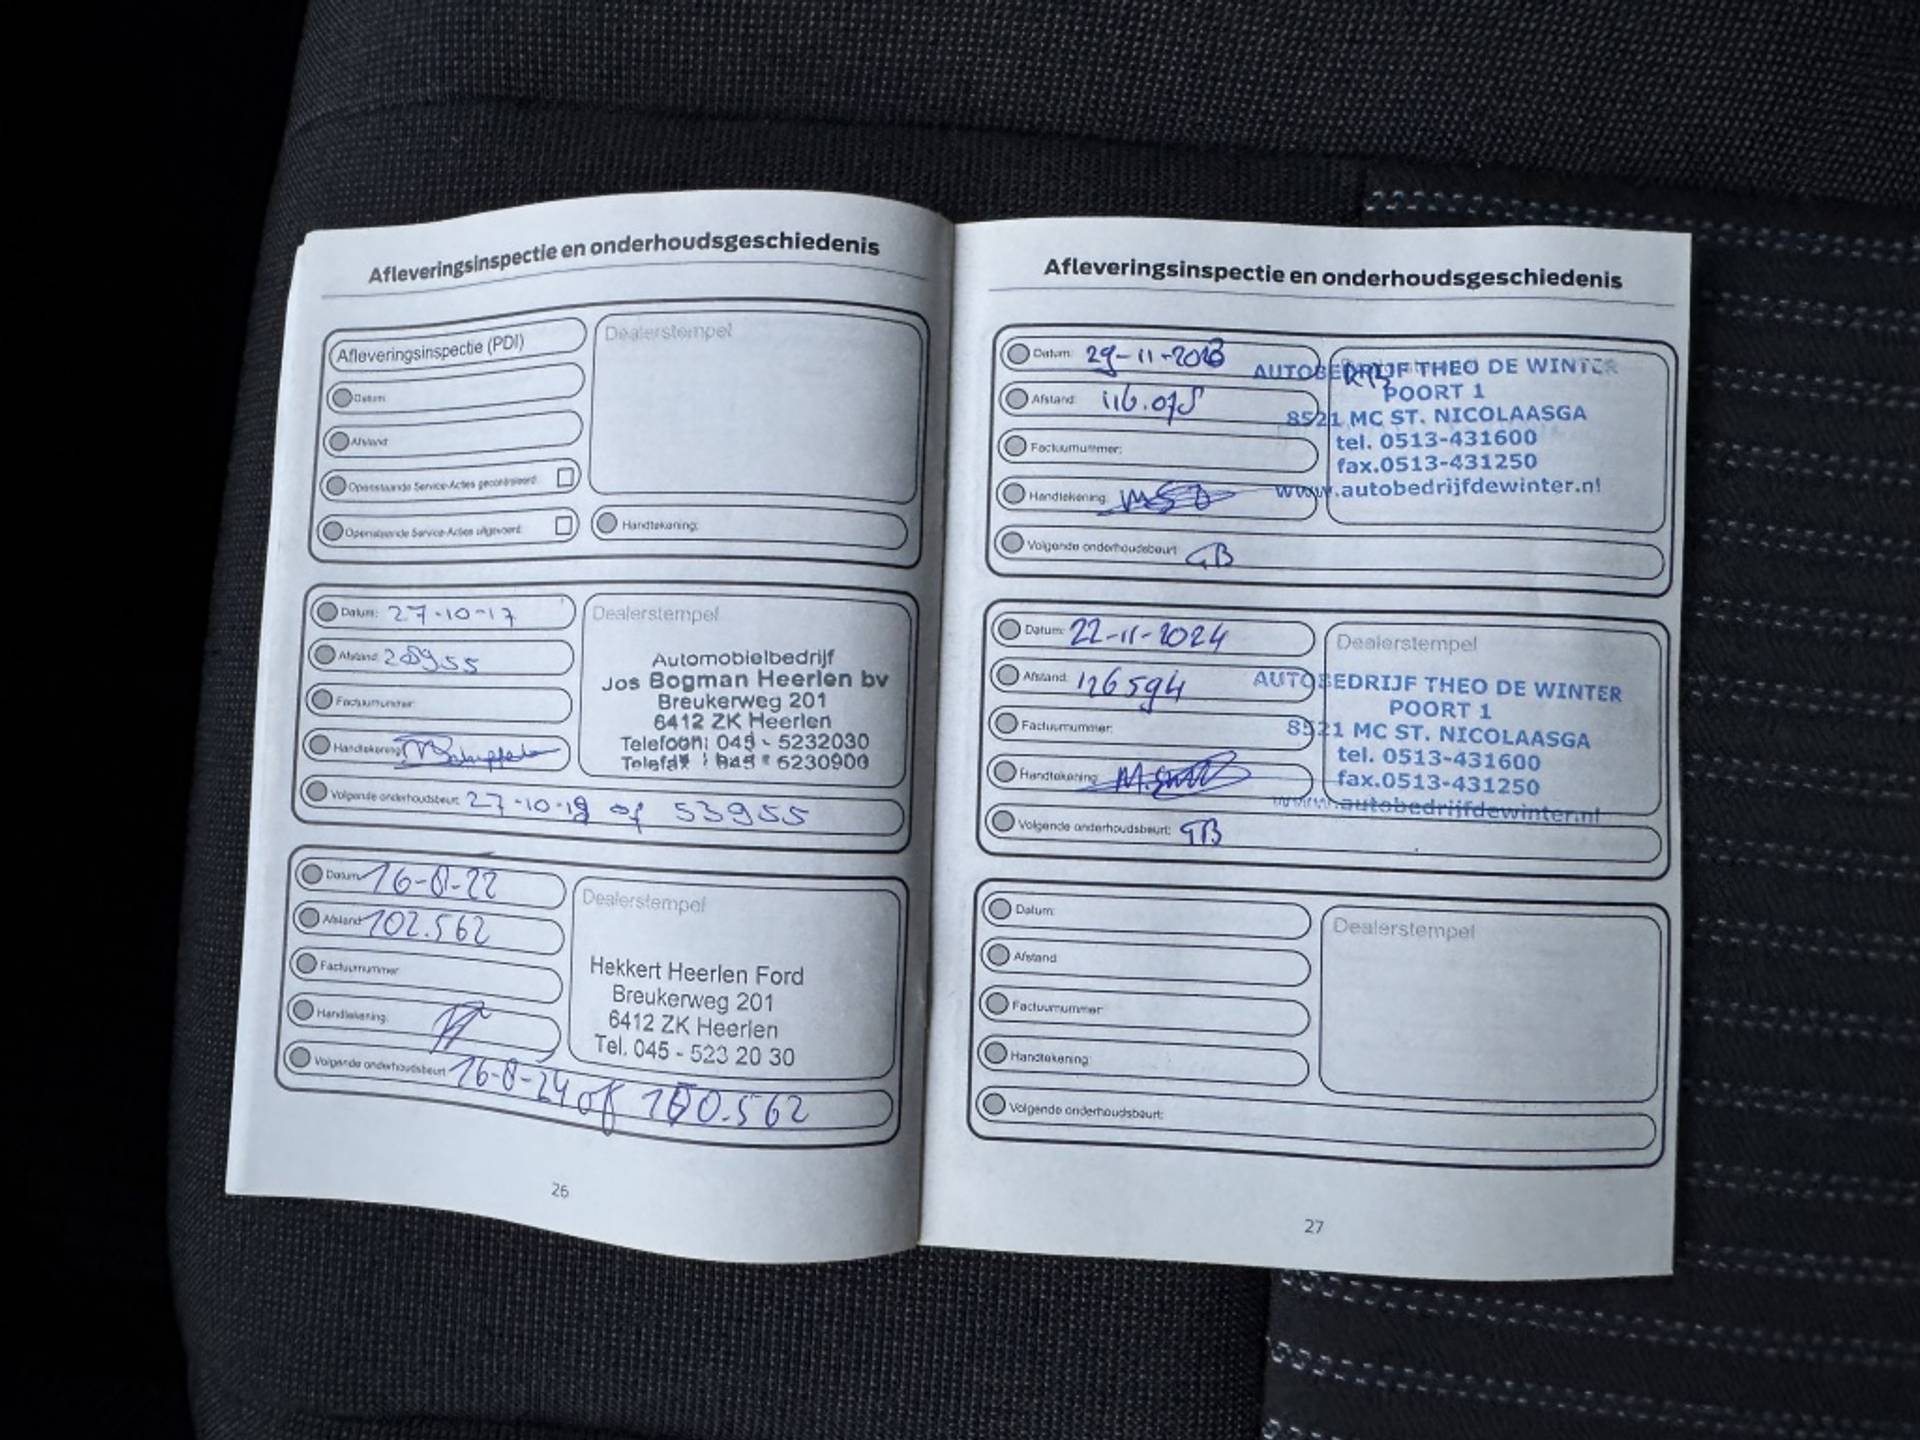 Afleveringsinspectie en onderhoudsgeschiedenis
Afleveringsinspectie (PDI)
Dealerstempel
Datum:
Afstand:
Openstaande Service-Acties gecontroleerd:
Openstaande Service-Acties uitgevoerd:
Handtekening:
Datum: 27-10-17
Dealerstempel
Afstand: 28955
Factuurnummer:
Handtekening:
Automobielbedrijf
Jos Bogman Heerlen bv
Breukerweg 201
6412 ZK Heerlen
Telefoon: 045 - 5232030
Telefax : 045 - 5230900
Volgende onderhoudsbeurt: 27-10-19 of 53955
Datum: 16-8-22
Dealerstempel
Afstand: 102.562
Factuurnummer:
Handtekening:
Hekkert Heerlen Ford
Breukerweg 201
6412 ZK Heerlen
Tel. 045 - 523 20 30
Volgende onderhoudsbeurt: 16-8-24 of
26
Afleveringsinspectie en onderhoudsgeschiedenis
Datum: 29-11-2023
Afstand: 116.075
Factuurnummer:
Handtekening:
AUTOBEDRIJF THEO DE WINTER
POORT 1
8521 MC ST. NICOLAASGA
tel. 0513-431600
fax.0513-431250
www.autobedrijfdewinter.nl
Volgende onderhoudsbeurt: GB
Datum: 22-11-2024
Dealerstempel
Afstand: 126594
Factuurnummer:
Handtekening:
AUTOBEDRIJF THEO DE WINTER
POORT 1
8521 MC ST. NICOLAASGA
tel. 0513-431600
fax.0513-431250
www.autobedrijfdewinter.nl
Volgende onderhoudsbeurt: GB
Datum:
Dealerstempel
Afstand:
Factuurnummer:
Handtekening:
Volgende onderhoudsbeurt:
27